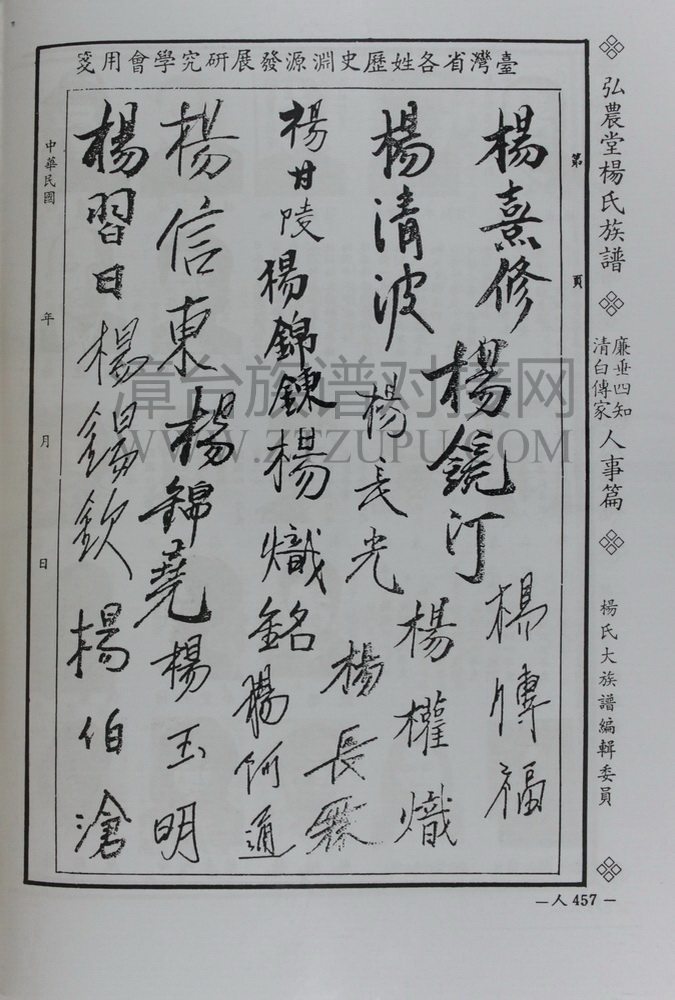 弘農堂楊氏族譜
廉垂四知
清白傳家
人事篇
楊氏大族譜編輯委員
臺灣省各姓歷史淵源發展研究學會用箋
第 頁
楊熹修
楊鏡汀
楊傳福
楊清波
楊長光
楊權熾
楊甘陵
楊錦鍊
楊熾銘
楊長
楊阿通
楊信東
楊錦堯
楊玉明
楊習日
楊錫欽
楊伯滄
中華民國 年 月 日
—人457—
漳台族谱对接网
WWW.ZTZUPU.COM